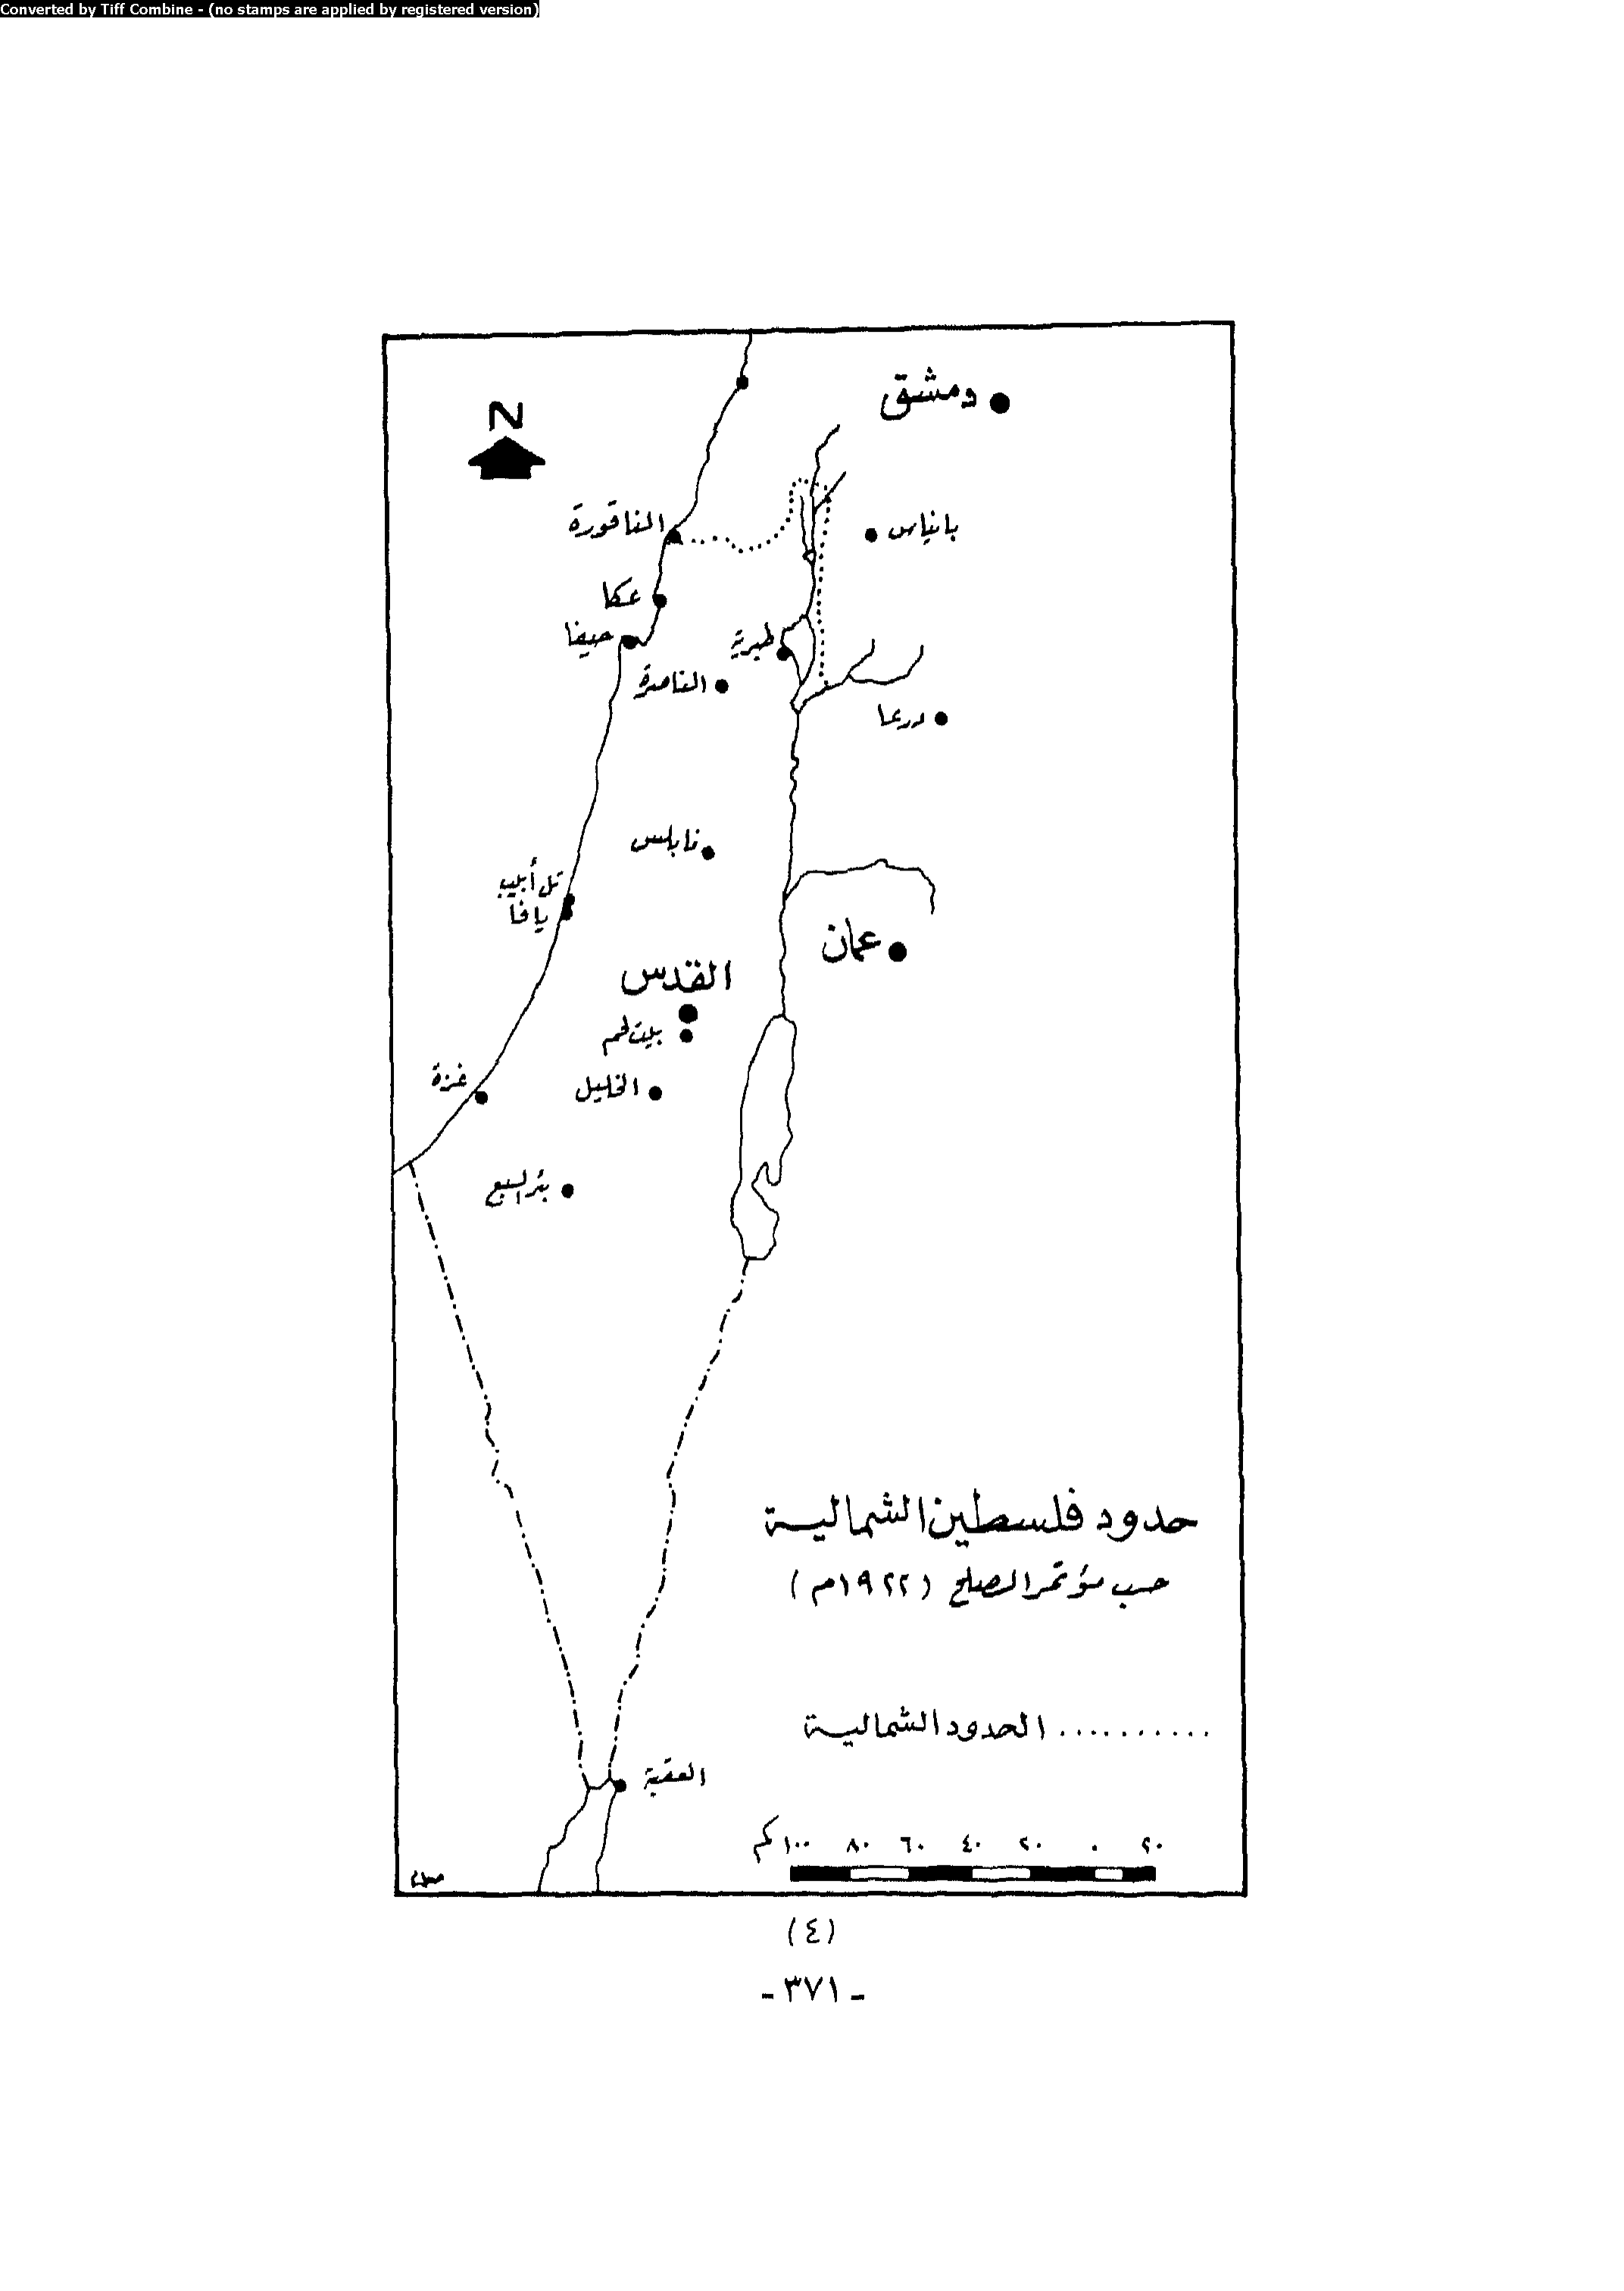 Converted by Tiff Combine - (no stamps are applied by registered version)
دمشق
N
الناقورة
بانياس
عكا
حيفا
طبرية
الناصرة
درعا
نابلس
تل أبيب
يافا
عمان
القدس
بيت لحم
الخليل
غزة
بئر السبع
حدود فلسطين الشمالية
حسب مؤتمر الصلح (١٩٢٢م)
الحدود الشمالية ..........
العقبة
كم ١٠٠ ٨٠ ٦٠ ٤٠ ٢٠ ٠ ٢٠
(٤)
- ٣٧١ -